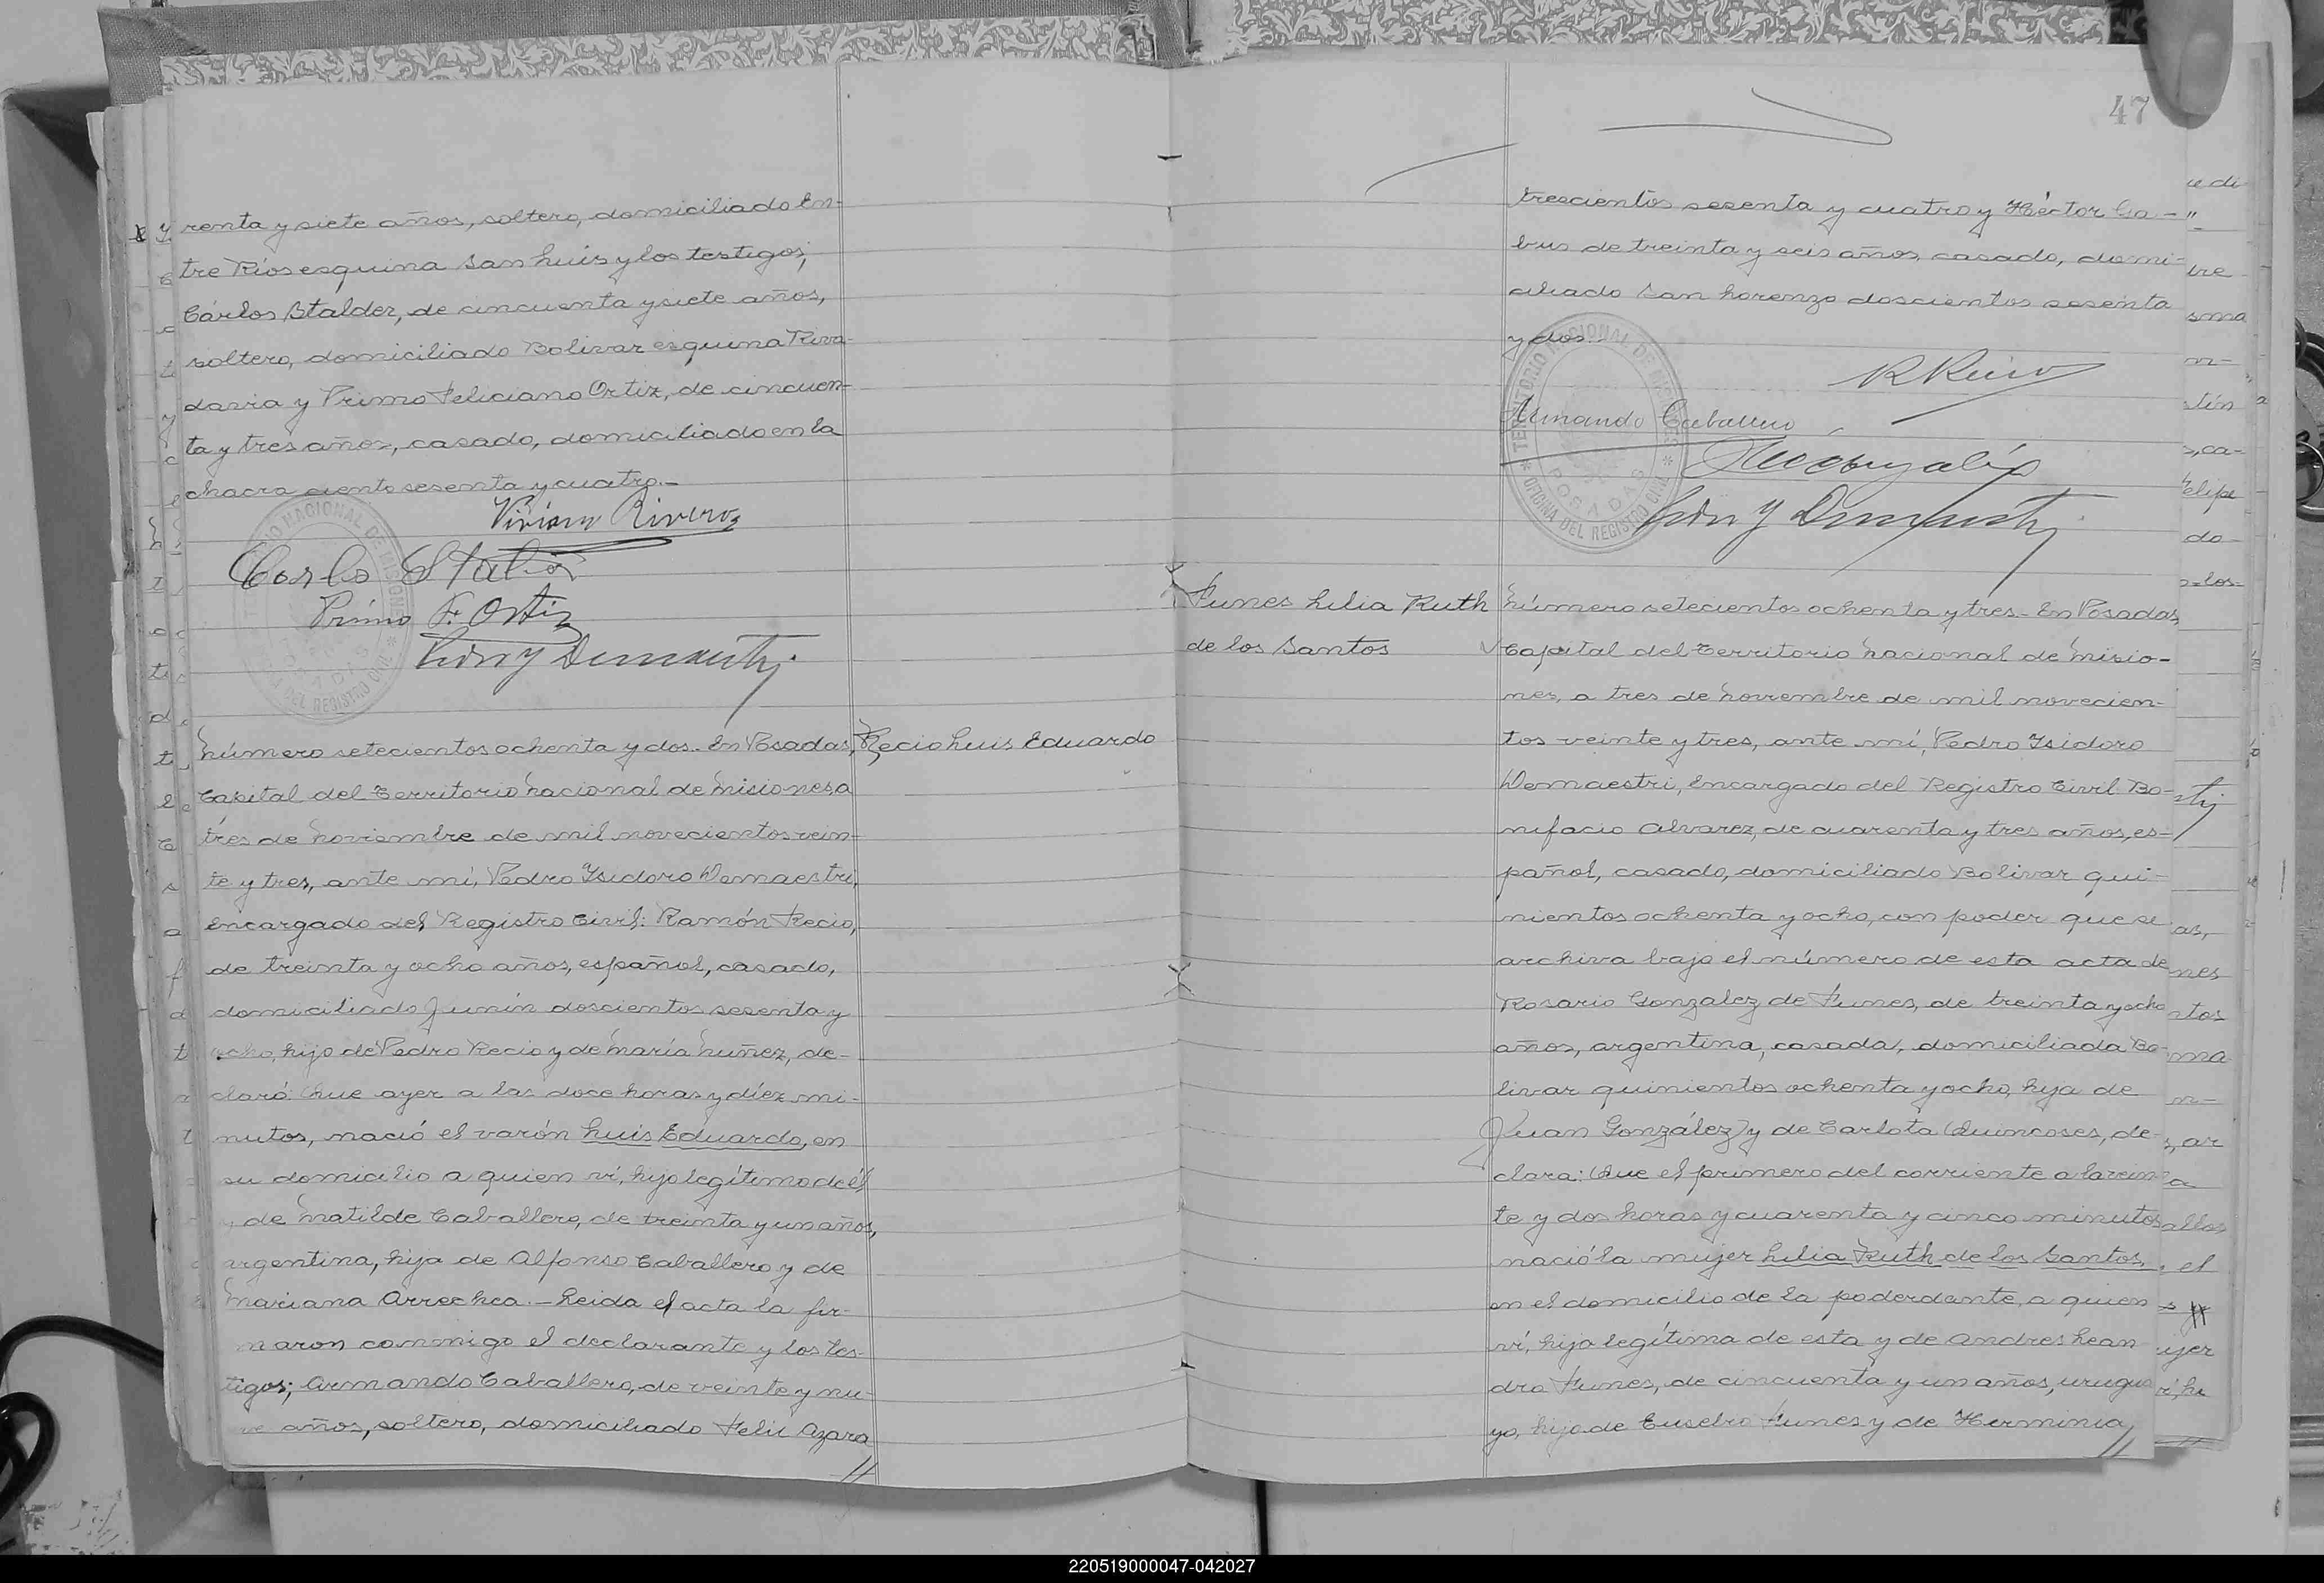 renta y siete años, soltero, domiciliado En-
tre Ríos esquina San Luis y los testigos;
Cárlos Stalder, de cincuenta y siete años,
soltero, domiciliado Bolivar esquina Riva-
davia y Primo Feliciano Ortiz, de cincuen-
ta y tres años, casado, domiciliado en la
chacra ciento sesenta y cuatro.-
Rivero
Carlos
Primo F. Ortiz
Número setecientos ochenta y dos. En Posadas,
Capital del Territorio Nacional de Misiones, a
tres de Noviembre de mil novecientos vein-
te y tres, ante mí, Pedro Ysidoro Demaestri,
Encargado del Registro Civil: Ramón Recio,
de treinta y ocho años, español, casado,
domiciliado Junín doscientos sesenta y
ocho, hijo de Pedro Recio y de María Nuñez, de-
claró: Que ayer a las doce horas y díez mi-
nutos, nació el varón Luis Eduardo, en
su domicilio a quien ví, hijo legítimo de él
y de Matilde Caballero, de treinta y un años,
argentina, hija de Alfonso Caballero y de
Mariana Arrechea.- Leida el acta la fir-
maron conmigo el declarante y los tes-
tigos; Armando Caballero, de veinte y nu-
ve años, soltero, domiciliado Felix Azara
//
Recio Luis Eduardo
47
trescientos sesenta y cuatro y Héctor Ca-
bus de treinta y seis años, casado, domi-
ciliado San Lorenzo doscientos sesenta
y dos.
R Recio
Armando Caballero
TERRITORIO NACIONAL DE MISIONES
POSADAS
OFICINA DEL REGISTRO CIVIL
Funes Lilia Ruth
de los Santos
Número setecientos ochenta y tres- En Posadas,
Capital del Territorio Nacional de Misio-
nes, a tres de Noviembre de mil novecien-
tos veinte y tres, ante mí, Pedro Ysidoro
Demaestri, Encargado del Registro Civil Bo-
nifacio Alvarez, de cuarenta y tres años, es-
pañol, casado, domiciliado Bolivar qui-
nientos ochenta y ocho, con poder que se
archiva bajo el número de esta acta de
Rosario Gonzalez de Funes, de treinta y ocho
años, argentina, casada, domiciliada Bo-
livar quinientos ochenta y ocho, hija de
Juan González y de Carlota Quincoses, de-
clara: Que el primero del corriente a la vein
te y dos horas y cuarenta y cinco minutos
nació la mujer Lilia Ruth de los Santos,
en el domicilio de la poderdante, a quien
ví, hija legítima de esta y de Andres Lean
dro Funes, de cincuenta y un años, urugua
yo, hijo de Eusebio Funes y de Herminia
//
220519000047-042027